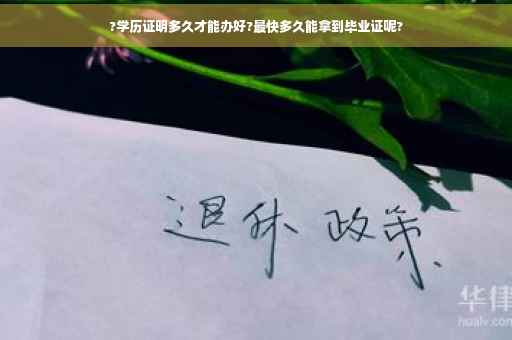 ?学历证明多久才能办好?最快多久能拿到毕业证呢?
退休 政策
华律
hualv.com